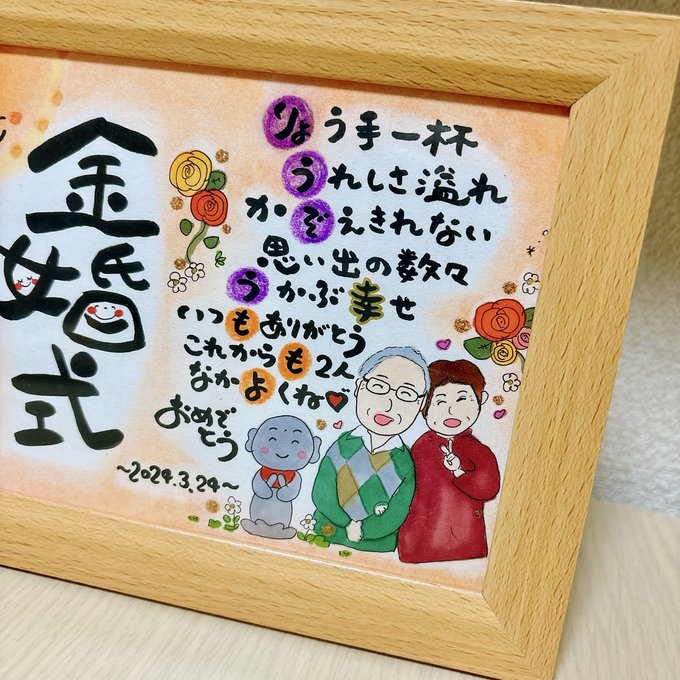 金婚式
りょう手一杯
うれしさ溢れ
かぞえきれない
思い出の数々
うかぶ幸せ
いつもありがとう
これからも2人
なかよくね♥
おめでとう
~2024.3.24~